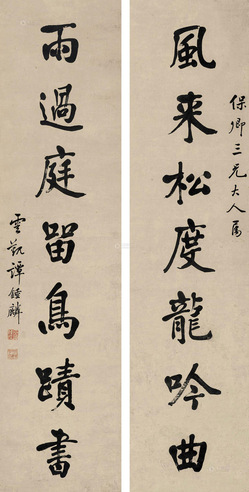 保卿三兄大人属
風来松度龍吟曲
雨過庭留鳥蹟書
雲覲譚鍾麟